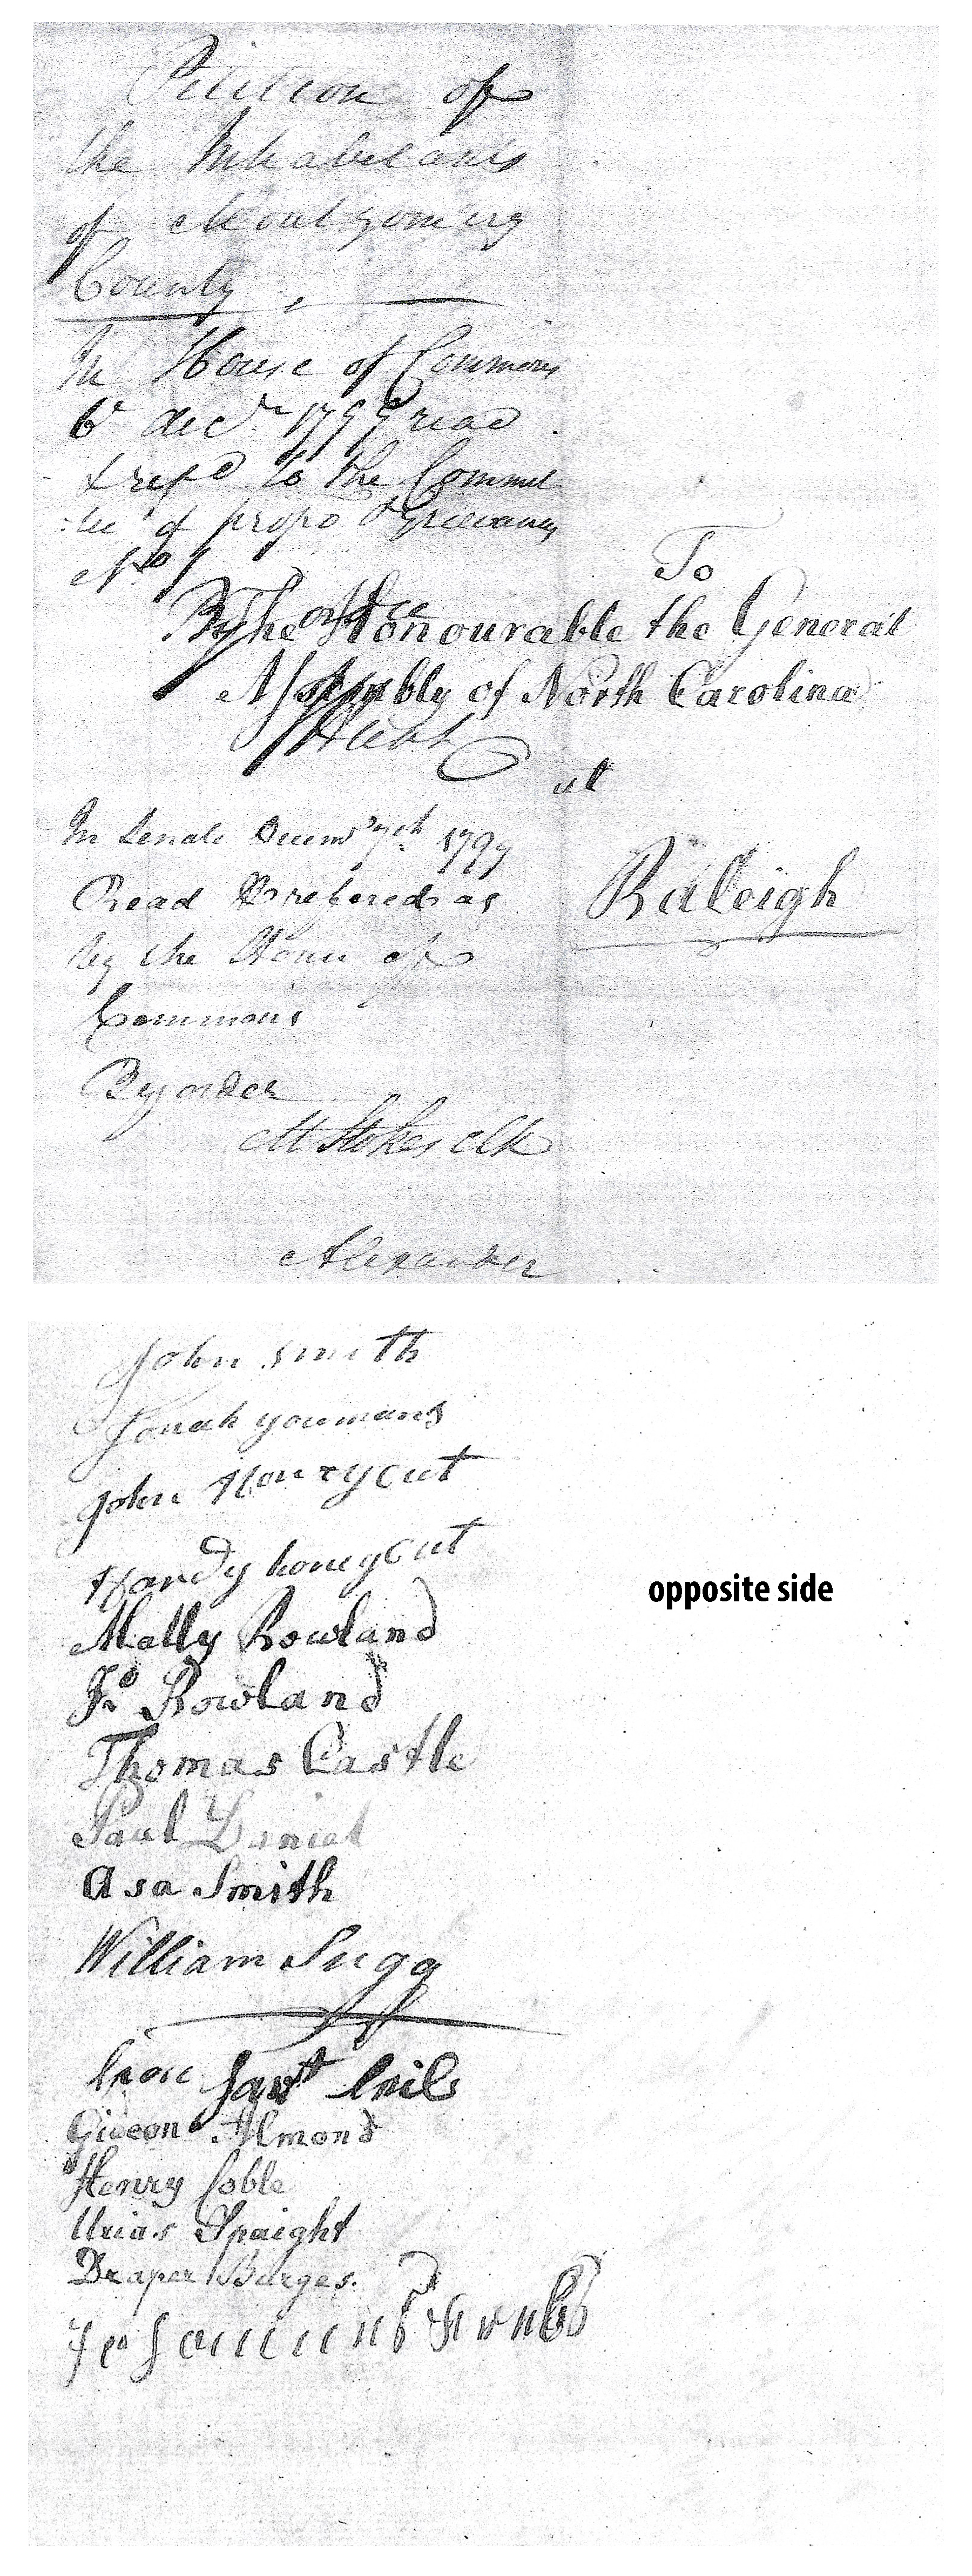 Petition of
the Inhabitants
of Montgomery
County,
In House of Commons
6th decr. 1799 read
& refd to the Commit
:tee of propo & Grievances
No 1
By order
To
The Honourable the General
Assembly of North Carolina
at
Raleigh
In Senate Decemr 7th 1799
Read & refered as
by the House of
Commons
By order
M Stokes Clk
Alexander
John Smith
Jonah youmans
John Honeycut
Hardy honeycut
opposite side
Matty Rowland
Jo Rowland
Thomas Castle
Paul Daniel
Asa Smith
William Sugg
Gideon Almond
Henry Coble
Urias Spaight
Draper Burges.